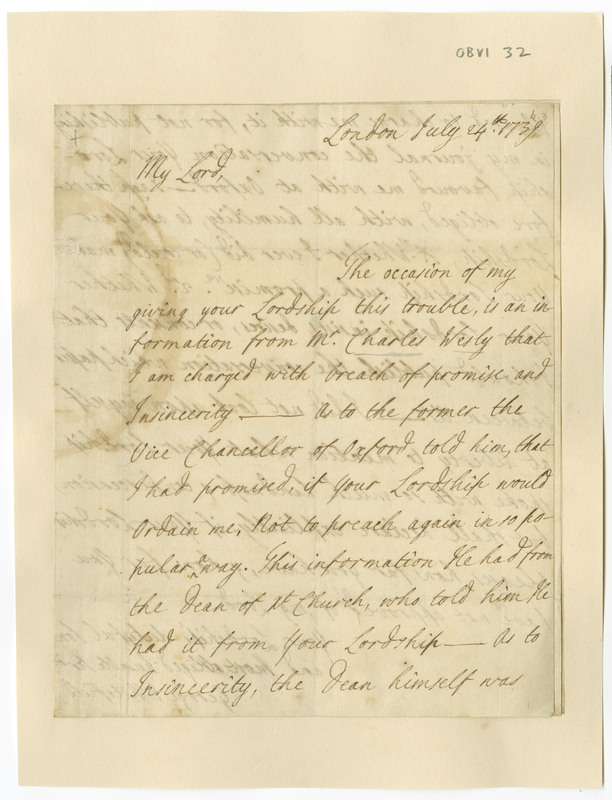 OBVI 32
London July 24th. 1739
My Lord,
The occasion of my
giving your Lordship this trouble, is an in-
formation from Mr. Charles Wesly that
I am charged with breach of promise and
Insincerity —— As to the former the
Vice Chancellor of Oxford told him, that
I had promised, if your Lordship would
Ordain me, Not to preach again in so po-
pular a way. This information He had from
the Dean of Xt Church, who told him He
had it from your Lordship — As to
Insincerity, the Dean himself was